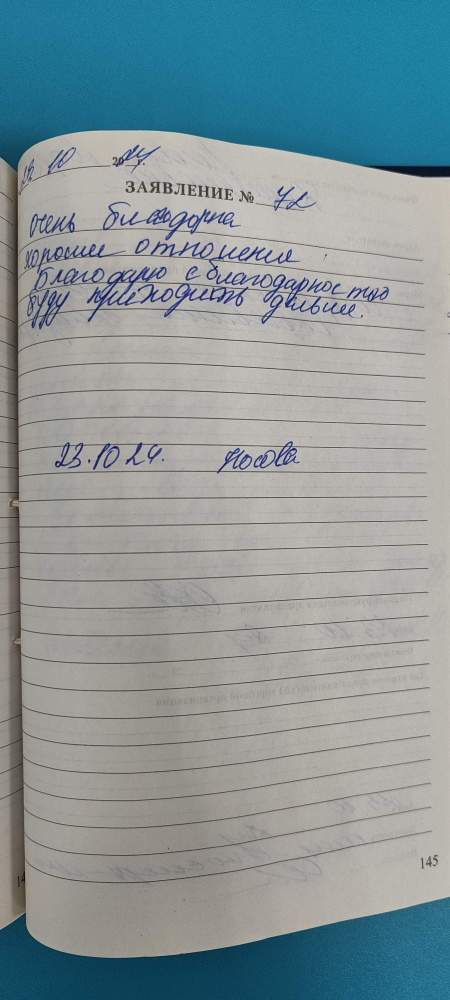 23 10 2024 г.
ЗАЯВЛЕНИЕ № 72
очень благодарна
хорошие отношения
благодарю с благодарностью
буду приходить дальше.
23.10 24. Носова
145